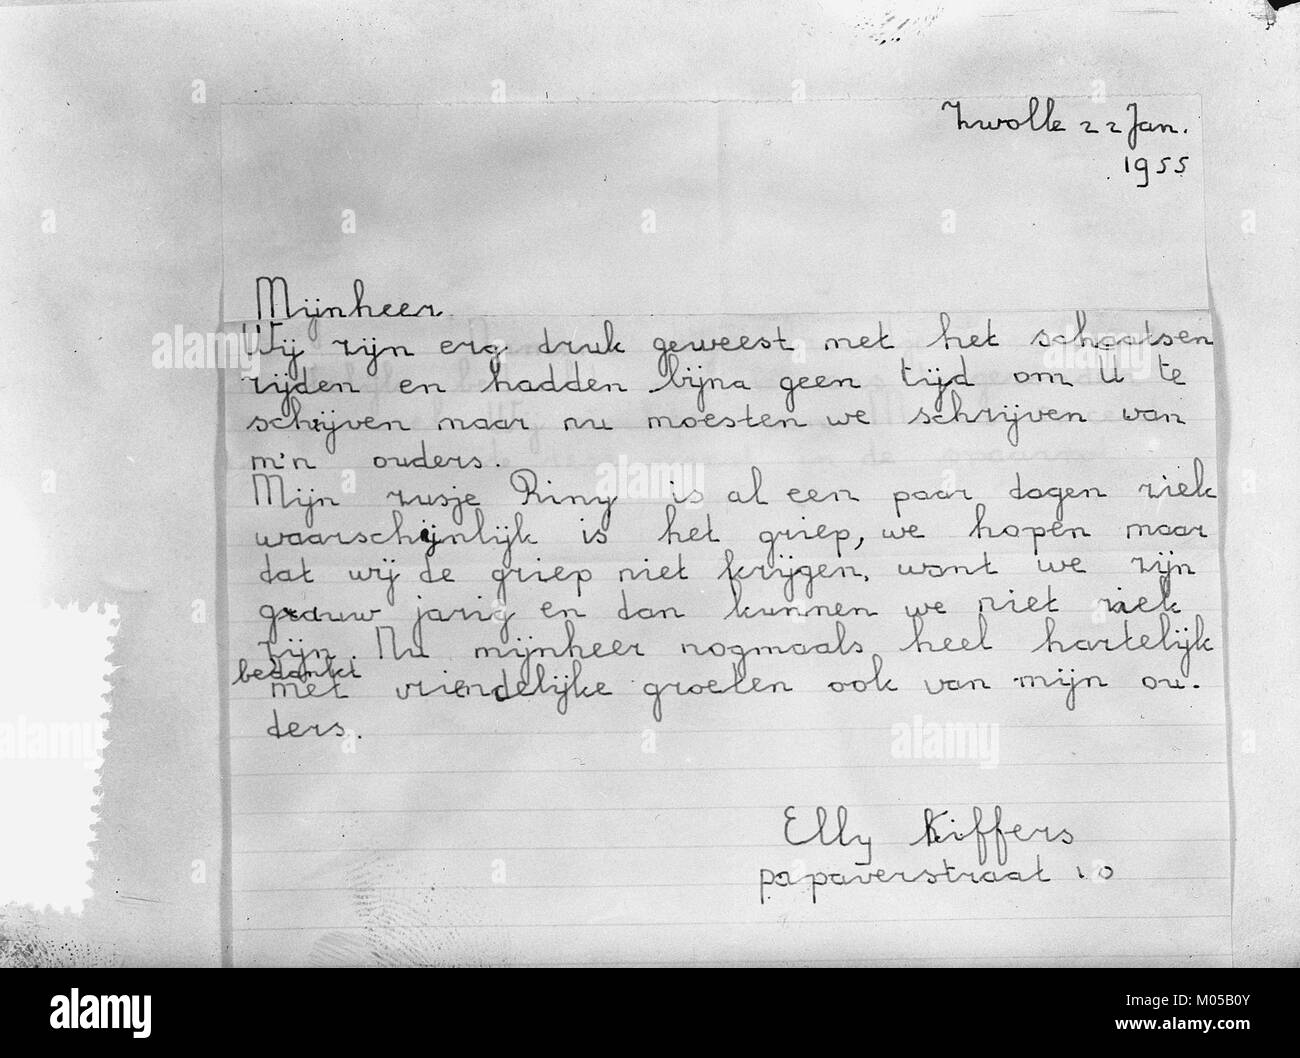 Zwolle 22 Jan.
1955
Mijnheer
Wij zijn erg druk geweest met het schaatsen
rijden en hadden bijna geen tijd om U te
schrijven maar nu moesten we schrijven van
m'n ouders.
Mijn zusje Riny is al een paar dagen ziek
waarschijnlijk is het griep, we hopen maar
dat wij de griep niet krijgen, want we zijn
gauw jarig en dan kunnen we niet ziek
zijn. Nu mijnheer nogmaals heel hartelijk
bedankt
met vriendelijke groeten ook van mijn ou-
ders.
Elly Kiffers
papaverstraat 10
alamy
Image ID: M05B0Y
www.alamy.com